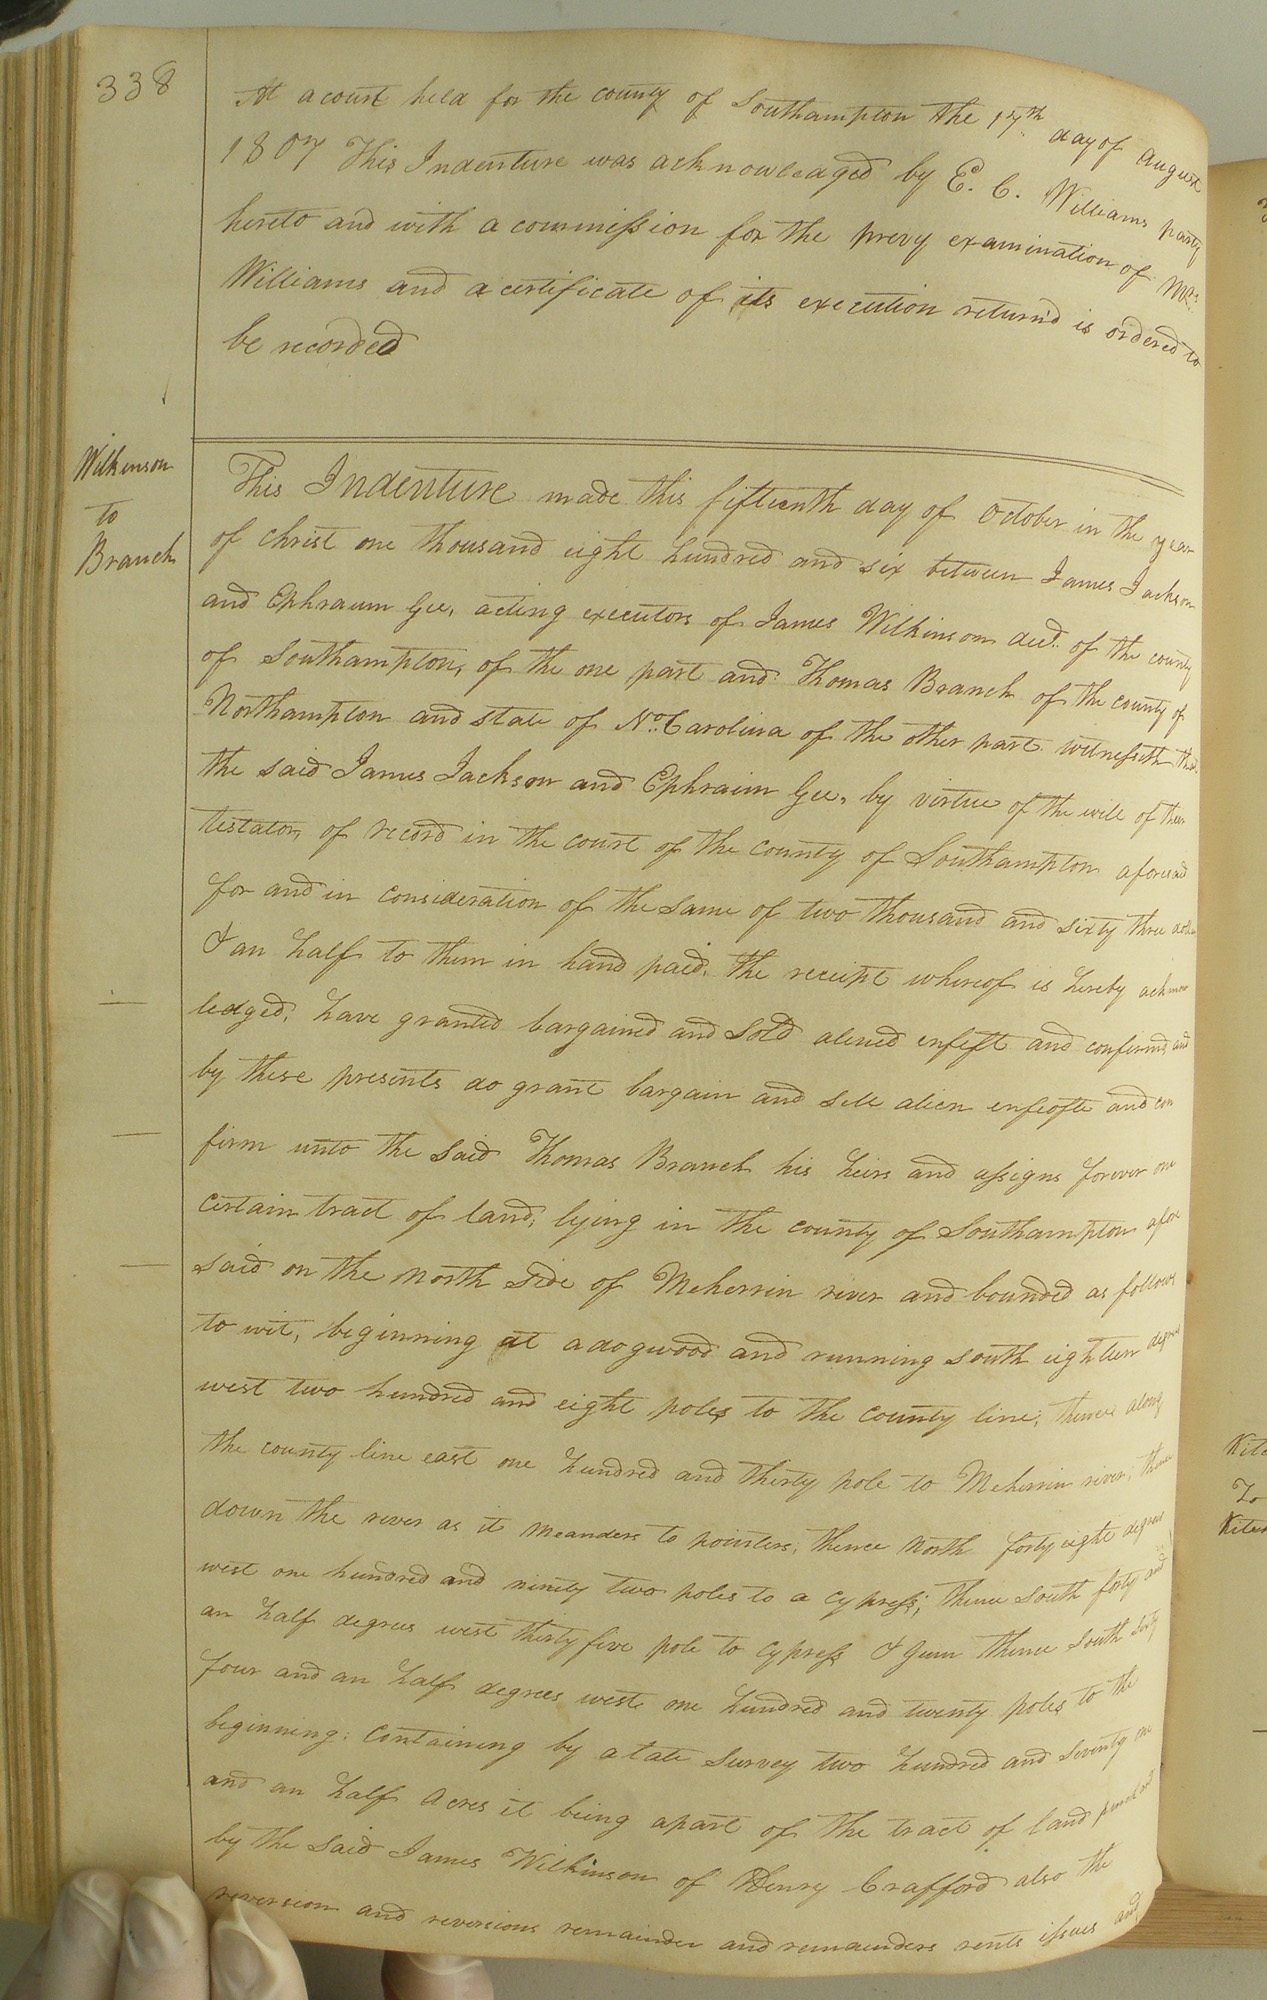 338
At a court held for the county of Southampton the 17th day of August
1807 This Indenture was acknowledged by E. C. Williams party
hereto and with a commission for the prevy examination of Mrs.
Williams and a certificate of its execution return'd is ordered to
be recorded
Wilkinson
to
Branch
This Indenture made this fifteenth day of October in the year
of Christ one thousand eight hundred and six between James Jackson
and Ephraim Gee, acting executors of James Wilkinson decd. of the county
of Southampton, of the one part and Thomas Branch of the county of
Northampton and state of No. Carolina of the other part witnesseth that
the said James Jackson and Ephraim Gee, by virtue of the will of their
testator, of record in the court of the county of Southampton aforesaid
for and in consideration of the same of two thousand and sixty three
& an half to them in hand paid, the receipt whereof is hereby acknow
ledged, have granted bargained and sold aliened enfeft and confirmd and
by these presents do grant bargain and sell alien enfeofte and con
firm unto the said Thomas Branch his heirs and assigns forever one
certain tract of land, lying in the county of Southampton afore
said on the north side of Meherrin river and bounded as follows
to wit, beginning at a dogwood and running south eighteen degrees
west two hundred and eight poles to the county line, thence along
the county line east one hundred and thirty pole to Meherrin river, thence
down the river as it meanders to pointers, thence north forty eight degrees
west one hundred and ninety two poles to a cypress; thence south forty and
an half degrees west thirty five pole to cypress & gum thence south sixty
four and an half degrees west one hundred and twenty poles to the
beginning: containing by a late survey two hundred and seventy one
and an half acres it being a part of the tract of land
by the said James Wilkinson of Henry Crafford also the
reversion and reversions remainder and remainders rents issues and
Kite
To